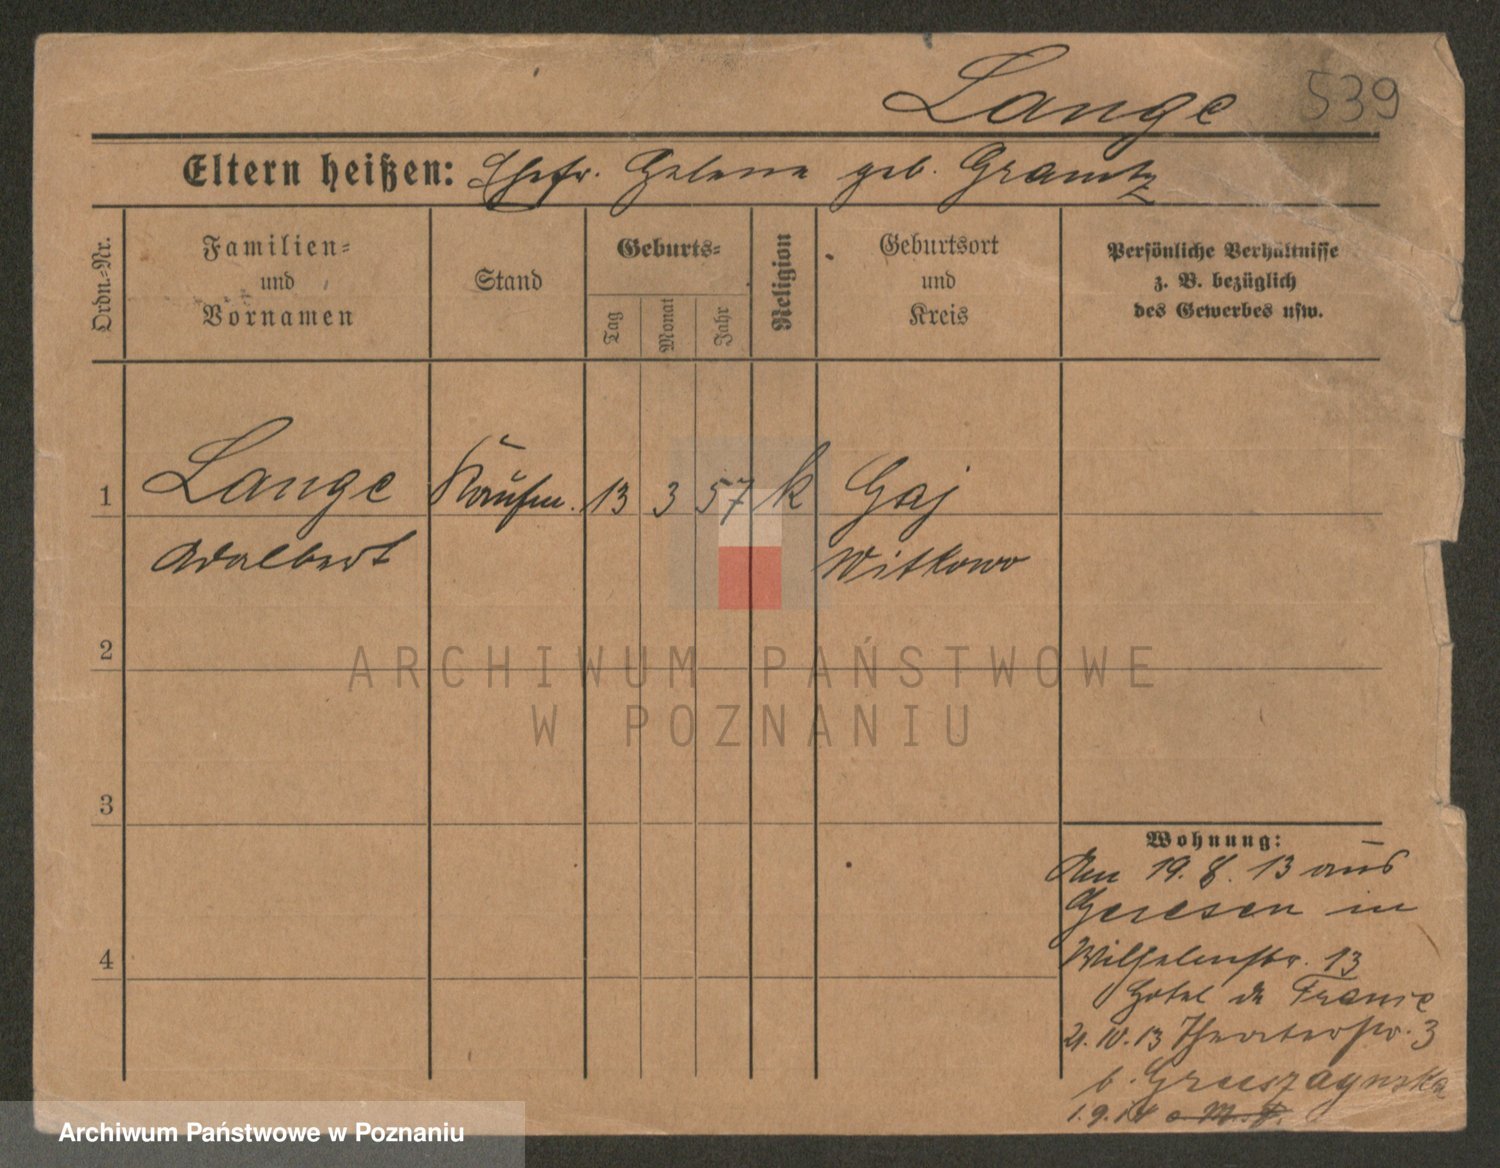 Lange 539
Eltern heißen: Ehefr. Helene geb. Gramtz
Ordn.-Nr.
Familien-
und
Vornamen
Stand
Geburts-
Tag
Monat
Jahr
Religion
Geburtsort
und
Kreis
Persönliche Verhältnisse
z. B. bezüglich
des Gewerbes usw.
1 Lange Kaufm. 13 3 57 k Gaj
Adalbert Witkowo
2
3
4
ARCHIWUM PAŃSTWOWE
W POZNANIU
Wohnung:
Am 19. 8. 13 aus
Gnesen in
Wilhelmstr. 13
Hotel de France
21. 10. 13 Theaterstr. 3
b. Gruszczynska
1.9.14
Archiwum Państwowe w Poznaniu